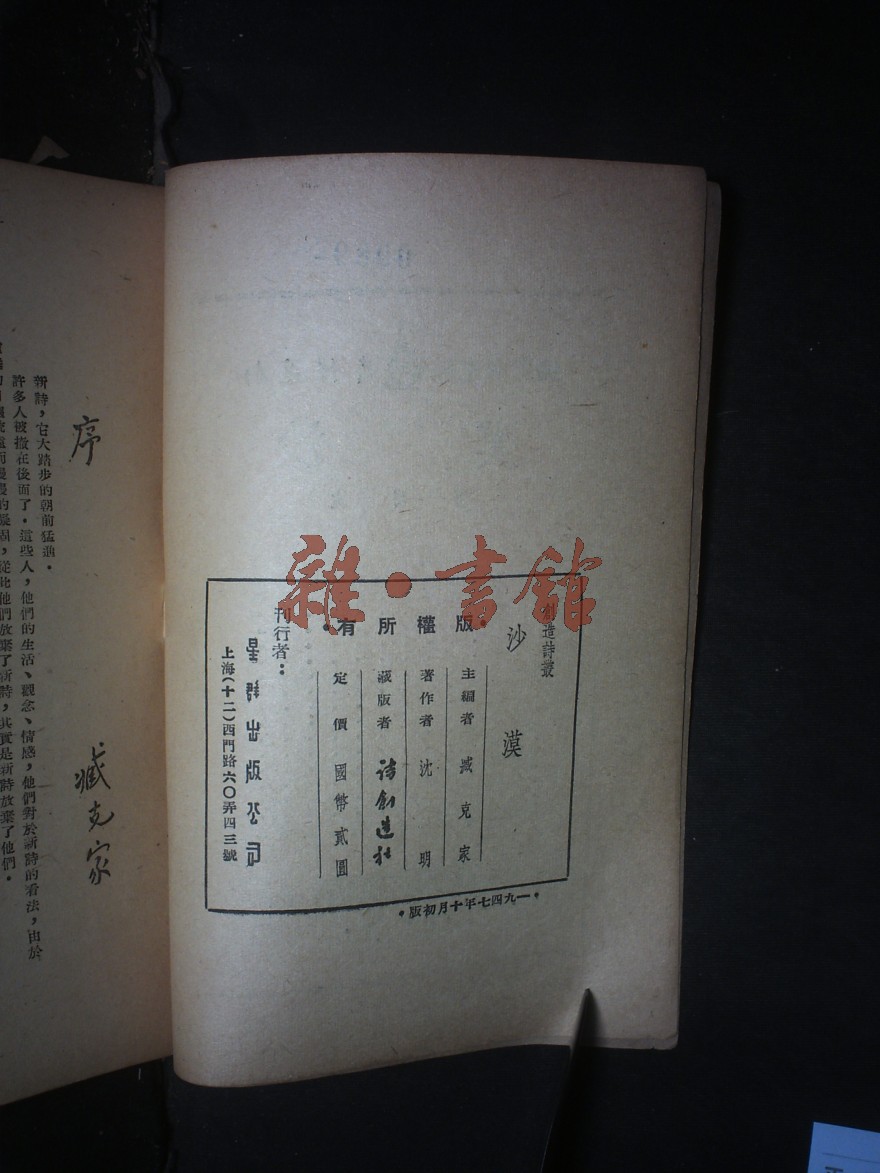 創造詩叢
沙漠
•版權所有•
主編者 臧克家
著作者 沈明
藏版者 詩創造社
定價 國幣貳圓
刊行者：
星群出版公司
上海(十二)西門路六〇弄四三號
•一九四七年十月初版•
雜•書館
序
臧克家
新詩，它大踏步的朝前猛進。
許多人被撇在後面了。這些人，他們的生活、觀念、情感，他們對於新詩的看法，由於
從此他們放棄了新詩，其實是新詩放棄了他們。